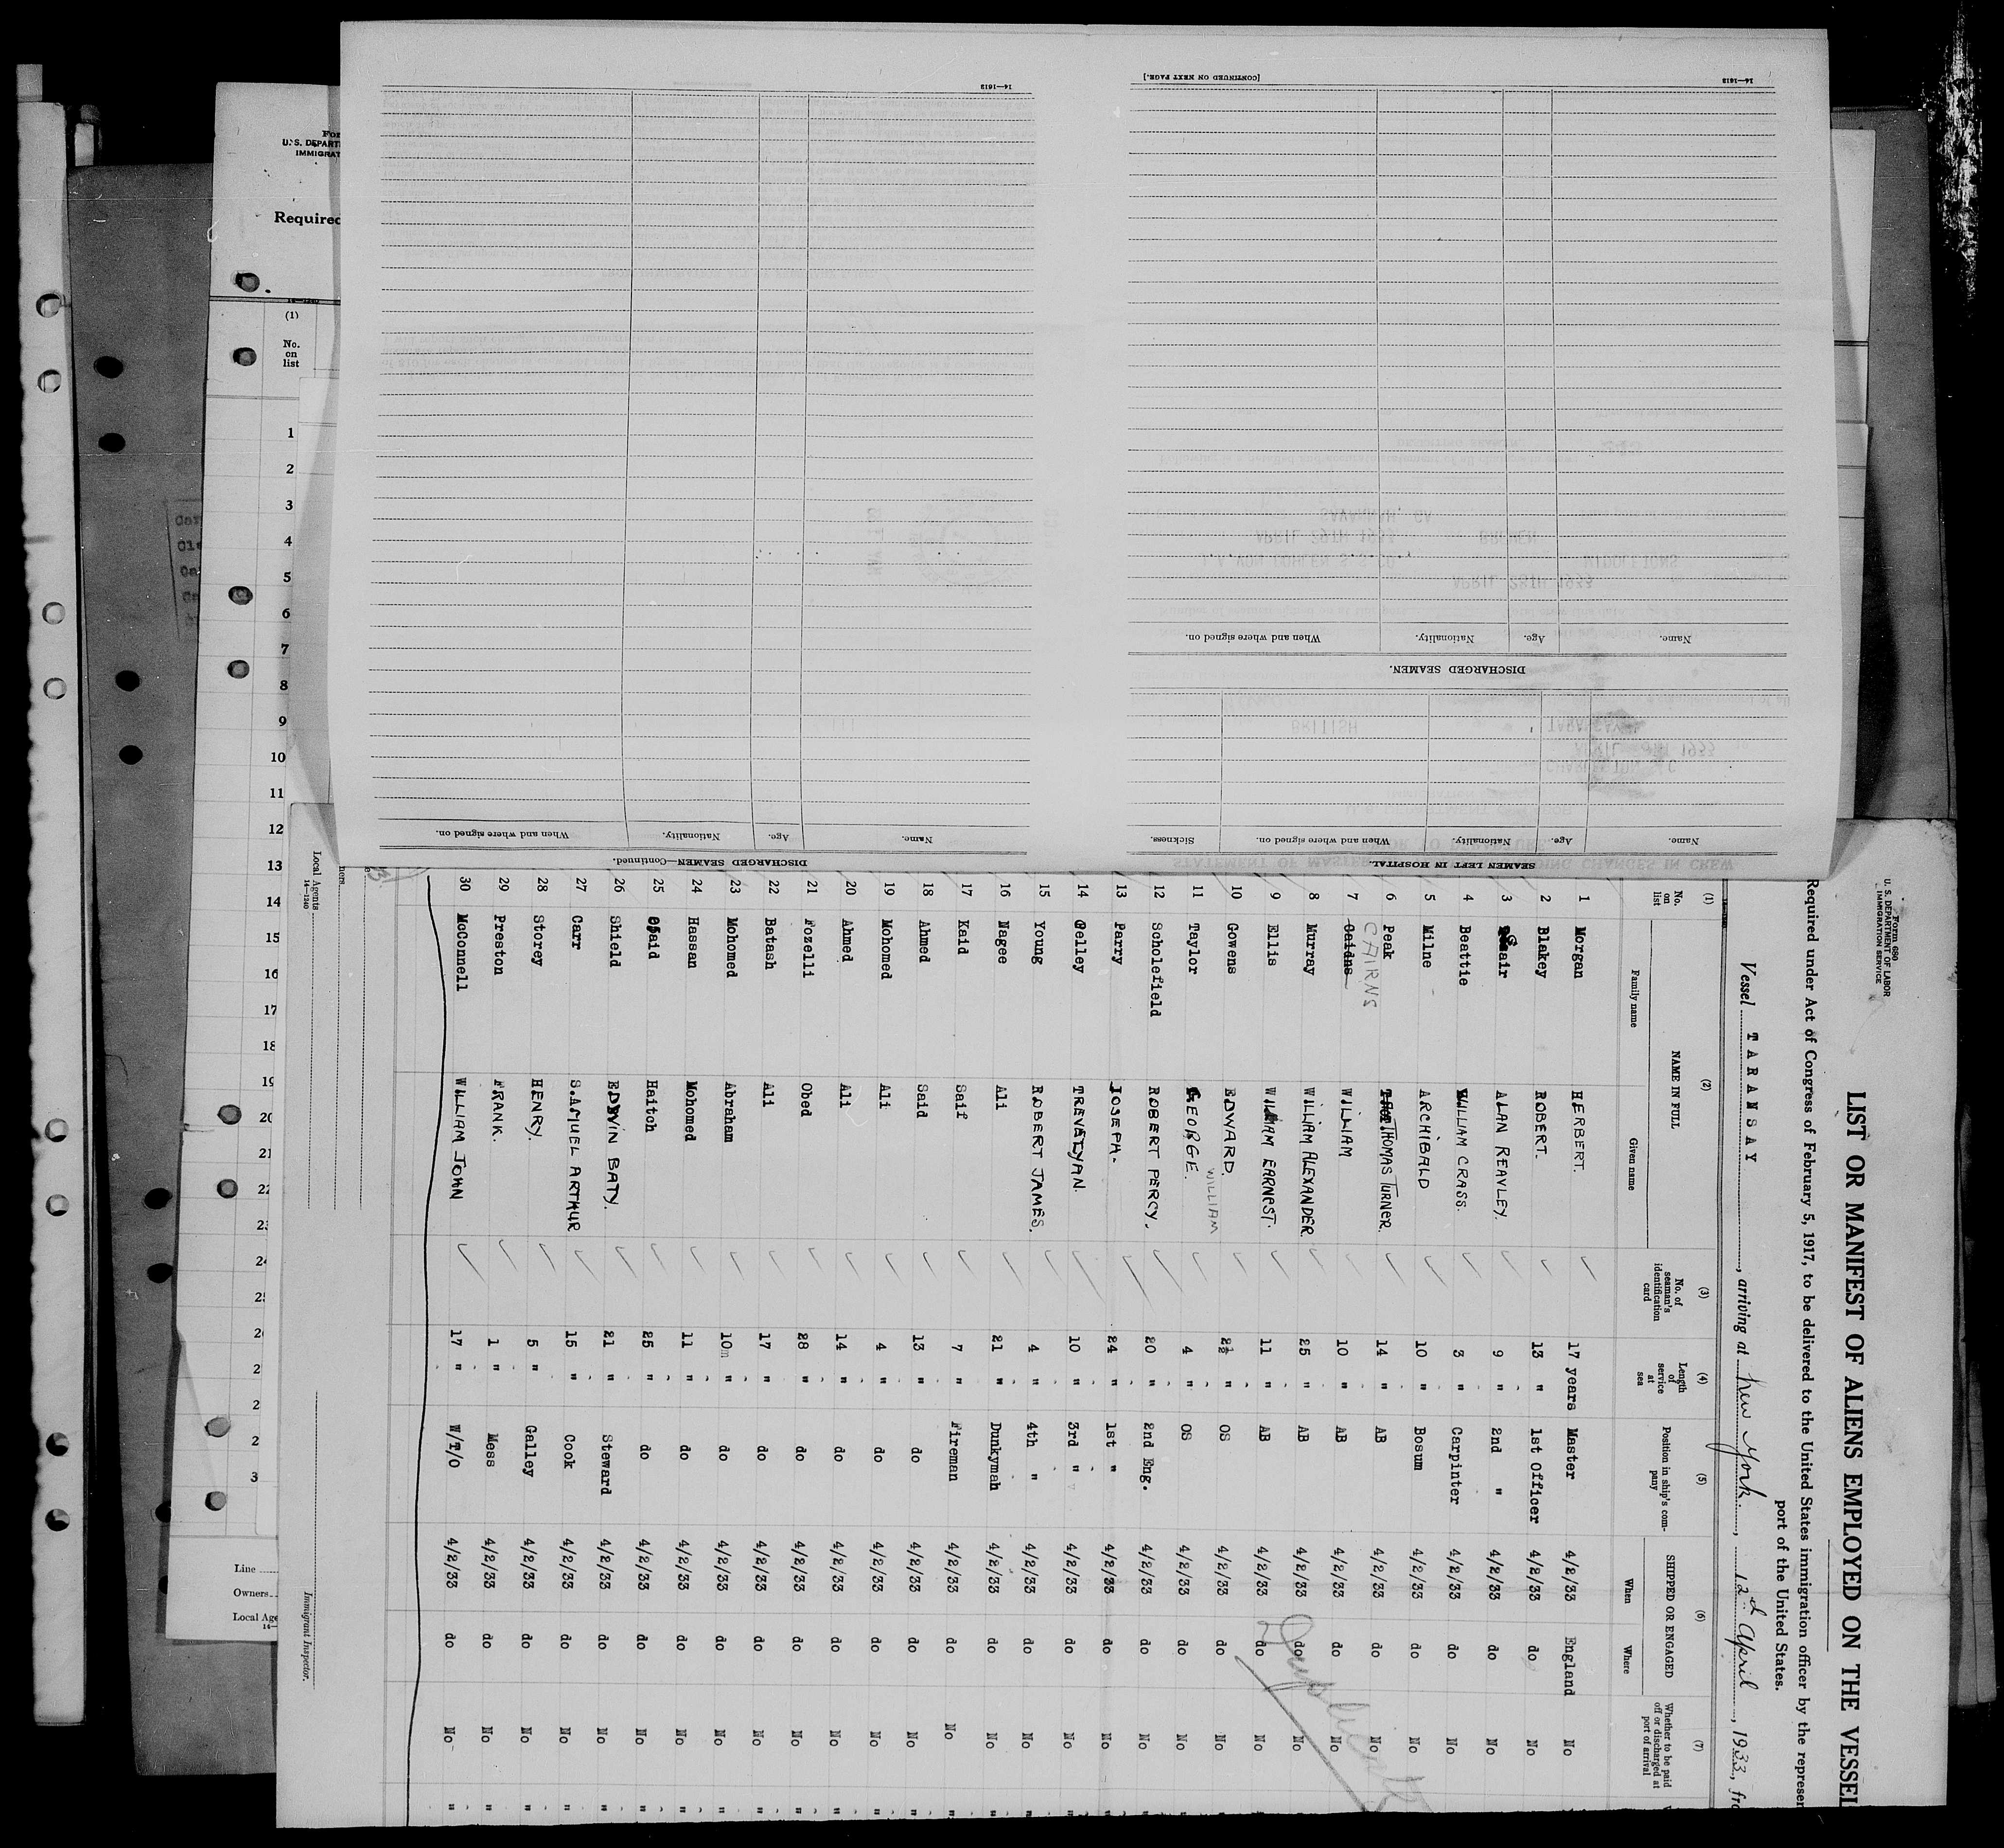 14—1613
[CONTINUED ON NEXT PAGE.]
14—1613
Name.
Age.
Nationality.
When and where signed on.
DISCHARGED SEAMEN.
Name.
Age.
Nationality.
When and where signed on.
Sickness.
SEAMEN LEFT IN HOSPITAL.
Name.
Age.
Nationality.
When and where signed on.
DISCHARGED SEAMEN—Continued.
U. S. DEPART
IMMIGRAT
Required
(1)
No.
on
list
1
2
3
4
5
6
7
8
9
10
11
12
13
14
15
16
17
18
19
20
21
22
Line
Owners
Local Age
Form 680
U. S. DEPARTMENT OF LABOR
IMMIGRATION SERVICE
LIST OR MANIFEST OF ALIENS EMPLOYED ON THE VESSEL
Required under Act of Congress of February 5, 1917, to be delivered to the United States immigration officer by the represen
port of the United States.
Vessel TARANSAY, arriving at New York, 12d April, 1933, fro
(1) (2) (3) (4) (5) (6) (7)
No. on list NAME IN FULL No. of seaman's identification card Length of service at sea Position in ship's company SHIPPED OR ENGAGED Whether to be paid off or discharged at port of arrival
Family name Given name When Where
1 Morgan HERBERT. 17 years Master 4/2/33 England No
2 Blakey ROBERT. 13 " 1st Officer 4/2/33 do No
3 Gair ALAN REAVLEY. 9 " 2nd " 4/2/33 do No
4 Beattie WILLIAM CRASS. 3 " Carpinter 4/2/33 do No
5 Milne ARCHIBALD 10 " Bosum 4/2/33 do No
6 Peak THOMAS TURNER. 14 " AB 4/2/33 do No
7 CAIRNS WILLIAM 10 " AB 4/2/33 do No
8 Murray WILLIAM ALEXANDER 25 " AB 4/2/33 do No
9 Ellis WILLIAM EARNEST. 11 " AB 4/2/33 do No
10 Gowens EDWARD. WILLIAM 2½ " OS 4/2/33 do No
11 Taylor GEORGE. 4 " OS 4/2/33 do No
12 Scholefield ROBERT PERCY. 20 " 2nd Eng. 4/2/33 do No
13 Parry JOSEPH. 24 " 1st " 4/2/33 do No
14 Gelley TREVELYAN. 10 " 3rd " 4/2/33 do No
15 Young ROBERT JAMES. 4 " 4th " 4/2/33 do No
16 Nagee Ali 21 " Dunkymah 4/2/33 do No
17 Kaid Saif 7 " Fireman 4/2/33 do No
18 Ahmed Said 13 " do 4/2/33 do No
19 Mohomed Ali 4 " do 4/2/33 do No
20 Ahmed Ali 14 " do 4/2/33 do No
21 Fozelli Obed 28 " do 4/2/33 do No
22 Batash Ali 17 " do 4/2/33 do No
23 Mohomed Abraham 10m " do 4/2/33 do No
24 Hassan Mohomed 11 " do 4/2/33 do No
25 Said Haitch 25 " do 4/2/33 do No
26 Shield EDWIN BATY. 21 " Steward 4/2/33 do No
27 Carr SAMUEL ARTHUR 15 " Cook 4/2/33 do No
28 Storey HENRY. 5 " Galley 4/2/33 do No
29 Preston FRANK. 1 " Mess 4/2/33 do No
30 McConnell WILLIAM JOHN 17 " W/T/O 4/2/33 do No
Local Agents
14—1240
Immigrant Inspector.